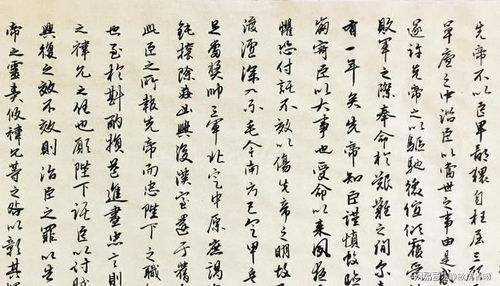 先帝不以臣卑鄙猥自枉屈三
草廬之中諮臣以當世之事由是
遂許先帝之以驅馳後值傾覆
敗軍之際奉命於艱難之間尔
有一年矣先帝知臣謹慎故臨
崩寄臣以大事也受命以來夙夜
懼恐付託不效以傷先帝之明故
渡瀘深入不毛今南方已定甲兵
足當獎帥三軍北定中原庶竭
鈍攘除姦凶興復漢室還于舊
此臣之所報先帝而忠陛下之職
也至於斟酌損益進盡忠言則
之禕允之任也願陛下託臣以討賊
興復之效不效則治臣之罪以告
帝之靈責攸禕允等之咎以彰其